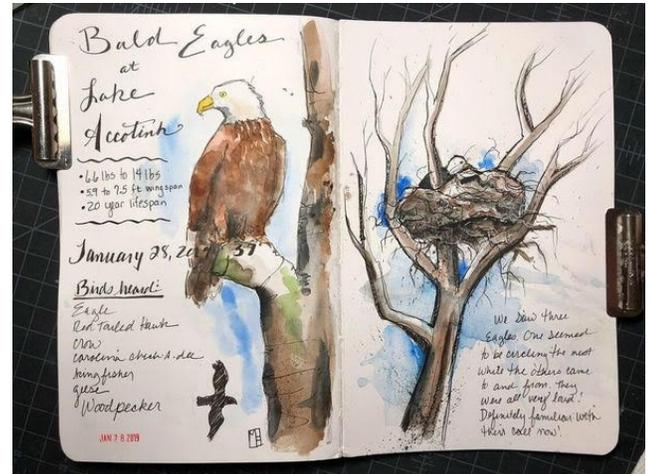 Bald Eagles
at
Lake
Accotink
• 6.6 lbs to 14 lbs
• 5.9 to 7.5 ft wingspan
• 20 year lifespan
January 28, 37
Birds heard:
Eagle
Red Tailed Hawk
crow
carolina chick-A-dee
kingfisher
geese
Woodpecker
JAN 28 2019
We saw three
Eagles. One seemed
to be circling the nest
while the others came
to and from. They
were all very loud!
Definitely familiar with
their call now!